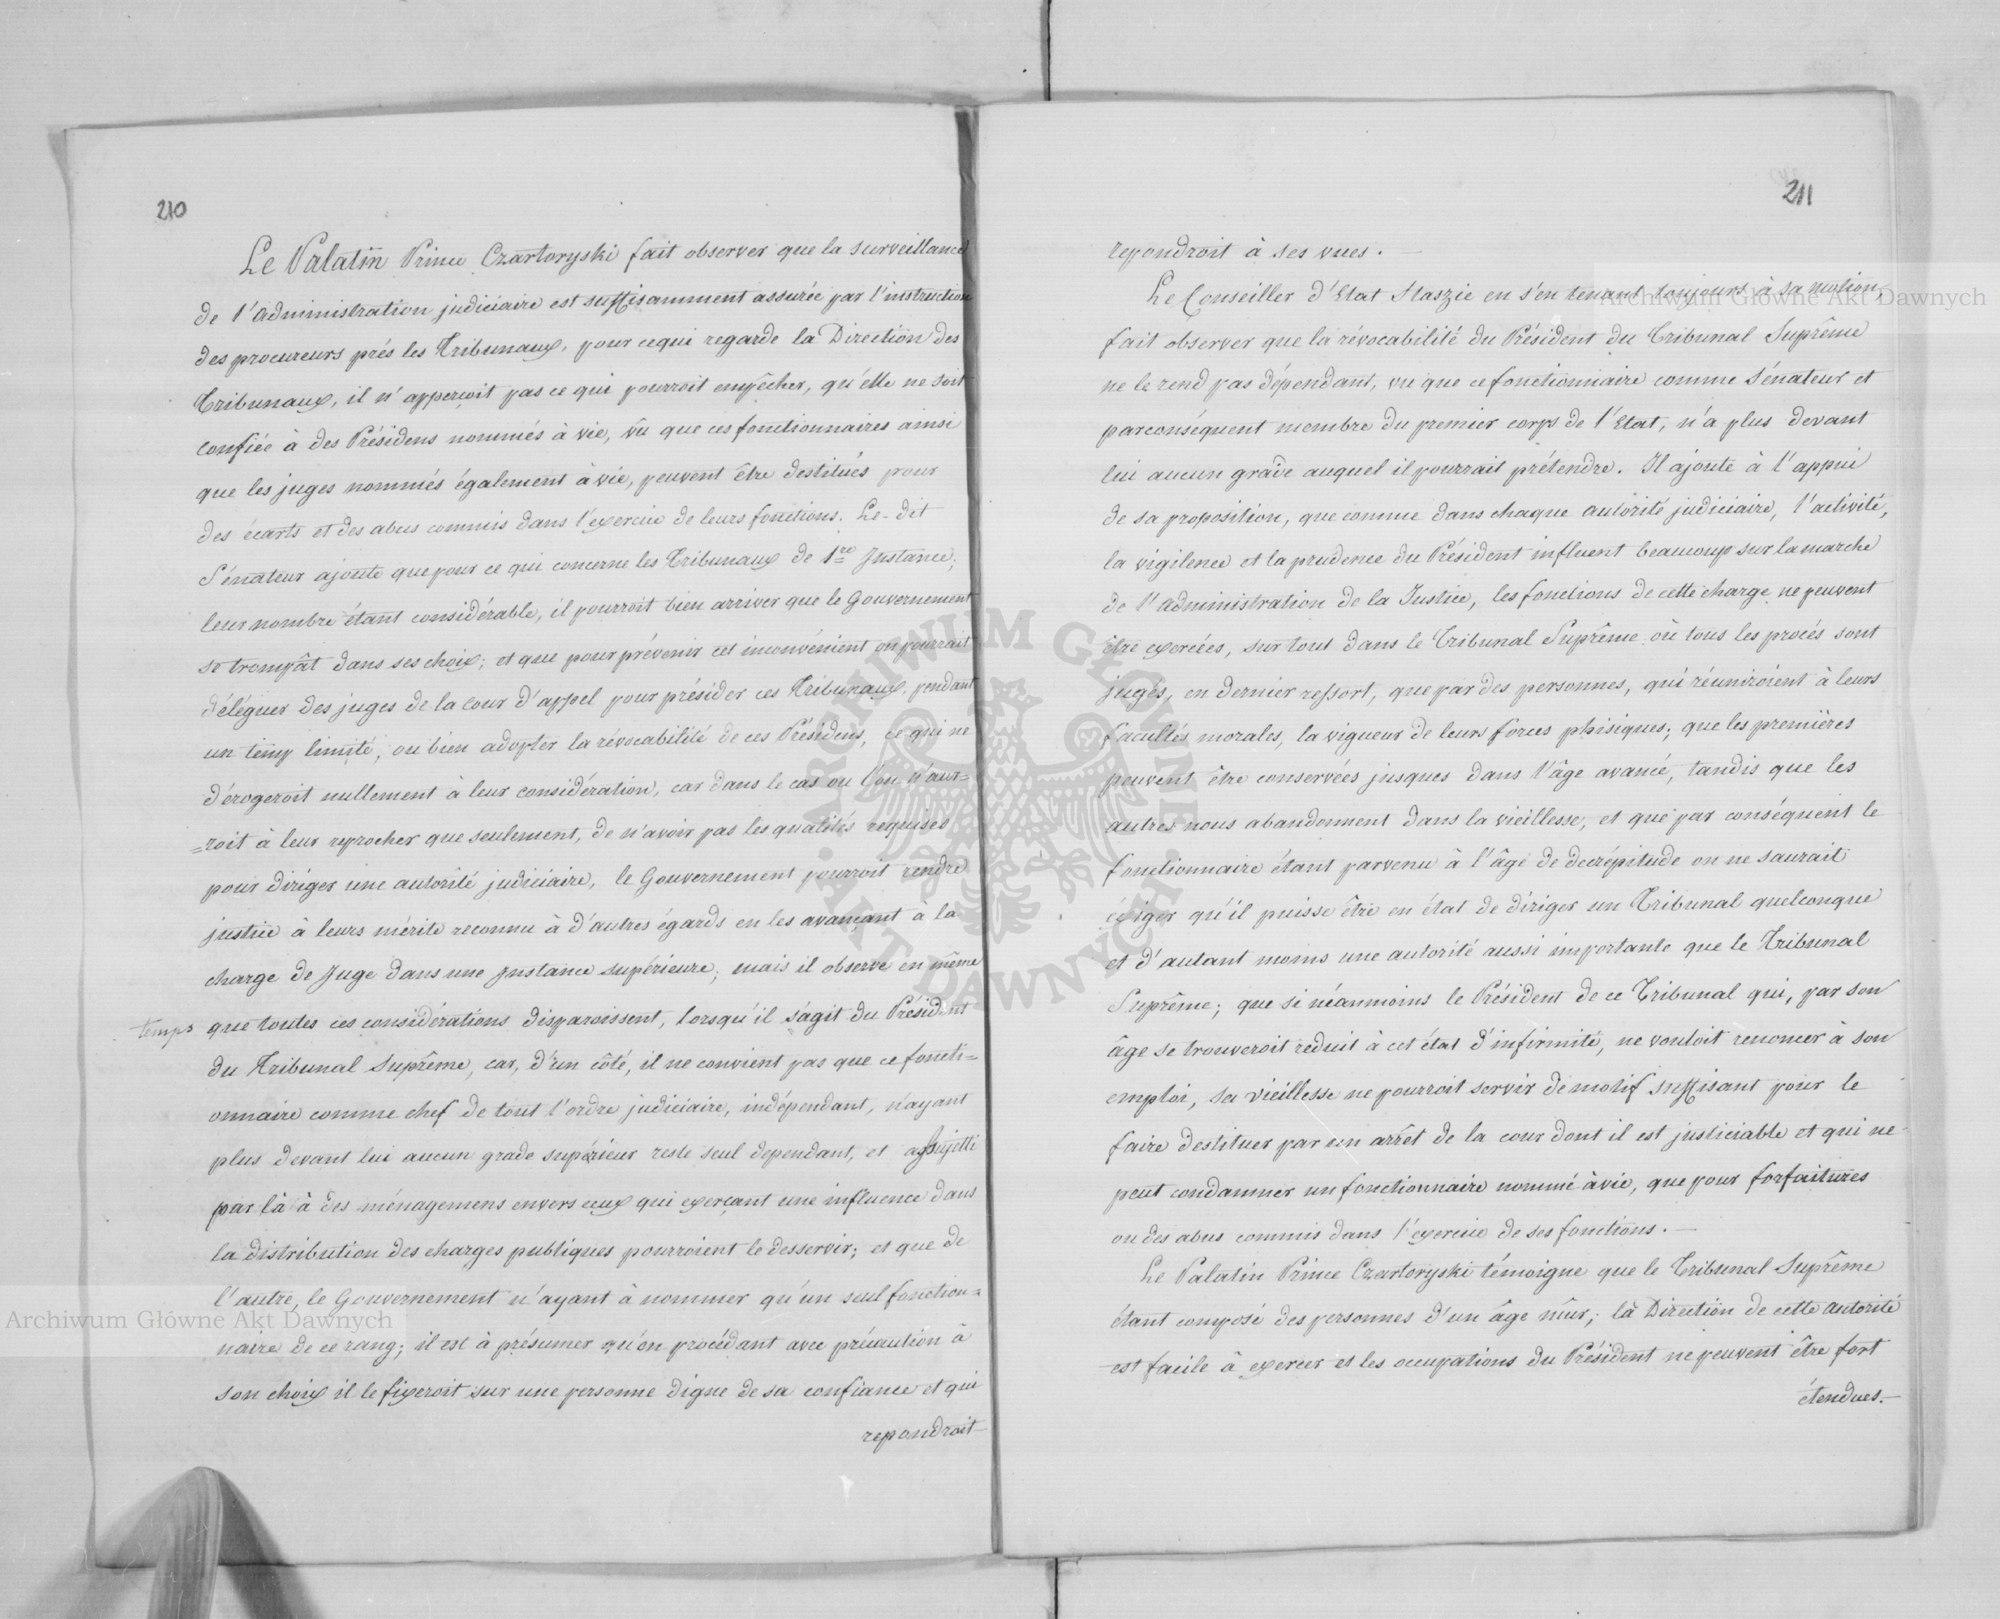 210
Le Palatin Prince Czartoryski fait observer que la surveillance
de l'administration judiciaire est suffisamment assurée par l'instruction
des procureurs prés les Tribunaux, pour cequi regarde la Direction des
Tribunaux, il n'apperçoit pas ce qui pourroit empêcher, qu'elle ne soit
confiée à des Présidens nommés à vie, vû que ces fonctionnaires ainsi
que les juges nommés également à vie, peuvent être destitués pour
des écarts et des abus commis dans l'exercice de leurs fonctions. Le-dit
Sénateur ajoute que pour ce qui concerne les Tribunaux de 1re Instance,
leur nombre étant considérable, il pourroit bien arriver que le Gouvernement
se trompât dans ses choix; et que pour prévenir cet inconvénient on pourrait
déléguer des juges de la cour d'appel pour présider ces Tribunaux, pendant
un temp limité, ou bien adopter la révocabilité de ces Présidens, ce qui ne
dérogeroit nullement à leur considération, car dans le cas ou l'on n'aur=
=roit à leur reprocher que seulement, de n'avoir pas les qualités requises
pour diriger une autorité judiciaire, le Gouvernement pourroit rendre
justice à leurs mérite reconnu à d'autres égards en les avançant à la
charge de Juge dans une Instance supérieure; mais il observe en même
temps que toutes ces considérations disparoissent, lorsqu'il s'agit du Président
du Tribunal Suprême, car, d'un côté, il ne convient pas que ce foncti=
onnaire comme chef de tout l'ordre judiciaire, indépendant, n'ayant
plus devant lui aucun grade supérieur reste seul dependant, et assujetti
par là à des ménagemens envers ceux qui exerçant une influence dans
la distribution des charges publiques pourroient le desservir; et que de
l'autre, le Gouvernement n'ayant à nommer qu'un seul fonction=
naire de ce rang; il est à présumer qu'en procédant avec précaution à
son choix il le fixeroit sur une personne digne de sa confiance et qui
repondroit
211
repondroit à ses vues. —
Le Conseiller d'Etat Staszic en s'en tenant toujours à sa motion,
fait observer que la révocabilité du Président du Tribunal Suprême
ne le rend pas dépendant, vu que ce fonctionnaire comme Sénateur et
parconséquent membre du premier corps de l'Etat, n'a plus devant
lui aucun grade auquel il pourrait prétendre. Il ajoute à l'appui
de sa proposition, que comme dans chaque autorité judiciaire, l'activité,
la vigilence et la prudence du Président influent beaucoup sur la marche
de l'administration de la Justice, les fonctions de cette charge ne peuvent
être exercées, sur tout dans le Tribunal Suprême où tous les procés sont
jugés, en dernier ressort, que par des personnes, qui réuniroient à leurs
facultés morales, la vigueur de leurs forces phisiques; que les premières
peuvent être conservées jusques dans l'âge avancé, tandis que les
autres nous abandonnent dans la vieillesse, et que par conséquent le
fonctionnaire étant parvenu à l'âge de decrépitude on ne saurait
exiger qu'il puisse être en état de diriger un Tribunal quelconque
et d'autant moins une autorité aussi importante que le Tribunal
Suprême; que si néanmoins le Président de ce Tribunal qui, par son
âge se trouveroit reduit à cet état d'infirmité, ne vouloit renoncer à son
emploi, sa vieillesse ne pourroit servir de motif suffisant pour le
faire destituer par un arrêt de la cour dont il est justiciable et qui ne
peut condamner un fonctionnaire nommé à vie, que pour forfaitures
ou des abus commis dans l'exercice de ses fonctions. —
Le Palatin Prince Czartoryski témoigne que le Tribunal Suprême
étant composé des personnes d'un âge mûr; la Direction de cette autorité
est facile à exercer et les occupations du Président ne peuvent être fort
étendues. —
Archiwum Główne Akt Dawnych
Archiwum Główne Akt Dawnych
ARCHIWUM GŁÓWNE AKT DAWNYCH